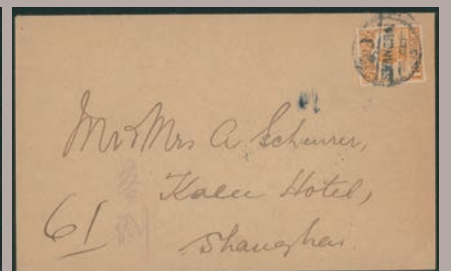 Mr & Mrs A Scheurer,
Kalee Hotel,
Shanghai.
61